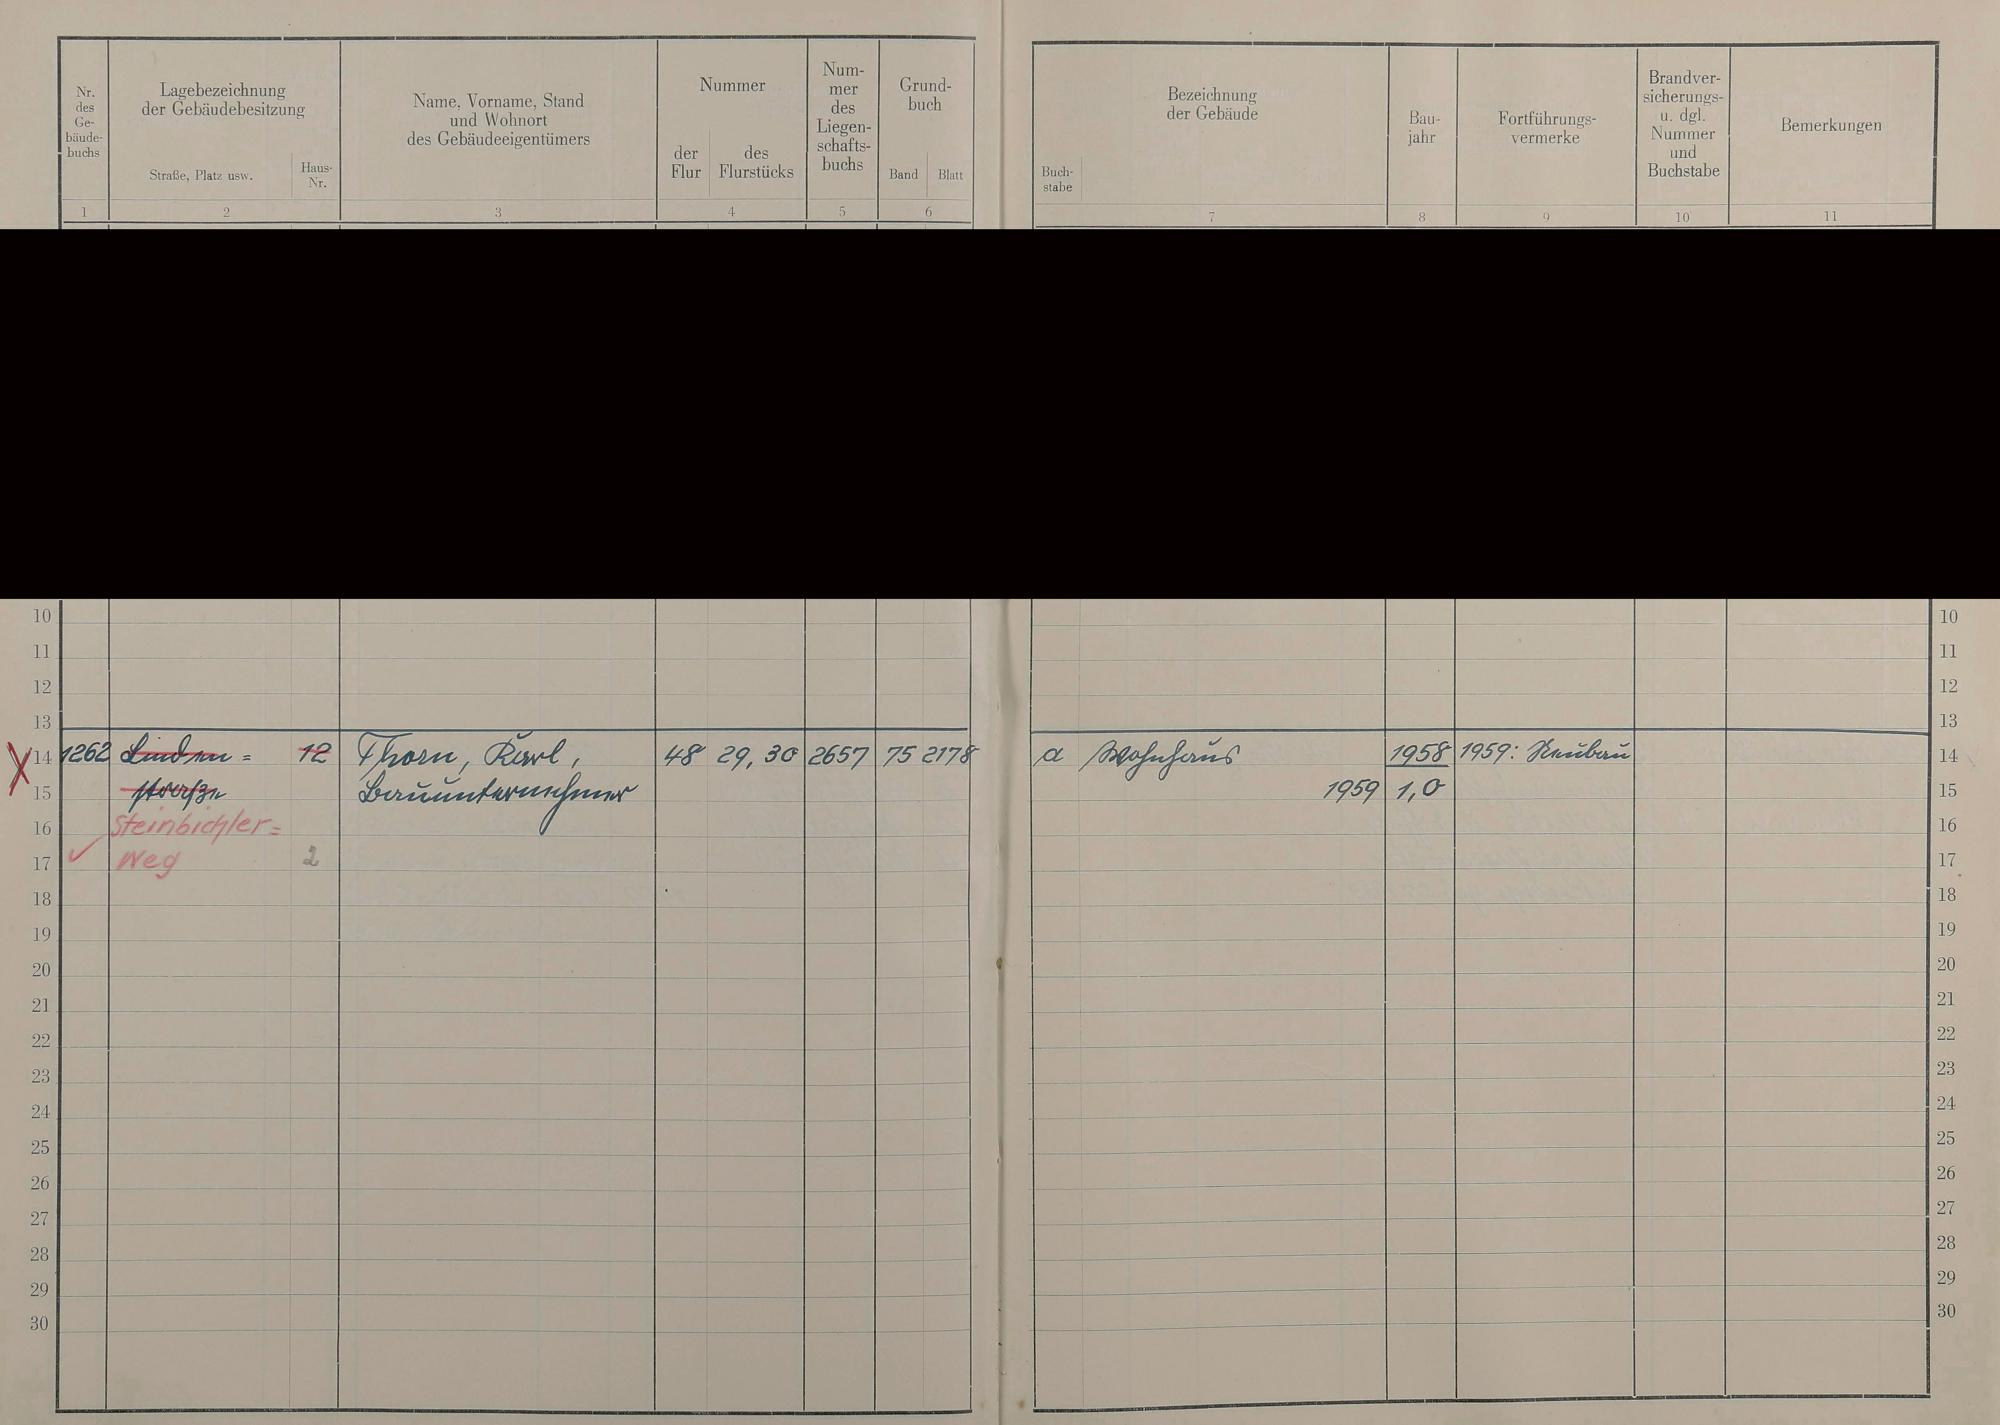 Nr. des Ge- bäude- buchs
Lagebezeichnung
der Gebäudebesitzung
Straße, Platz usw.
Haus- Nr.
Name, Vorname, Stand
und Wohnort
des Gebäudeeigentümers
Nummer
der Flur
des Flurstücks
Num- mer des Liegen- schafts- buchs
Grund- buch
Band Blatt
1 2 3 4 5 6
Buch- stabe
Bezeichnung
der Gebäude
Bau- jahr
Fortführungs- vermerke
Brandver- sicherungs- u. dgl. Nummer und Buchstabe
Bemerkungen
7 8 9 10 11
10 10
11 11
12 12
13 13
14 1262 Linden= 12 Thorn, Karl, 48 29, 30 2657 75 2178 a Wohnhaus 1958 1959: Neubau 14
15 straße Bauunternehmer 1959 1,0 15
16 Steinbichler= 16
17 Weg 2 17
18 18
19 19
20 20
21 21
22 22
23 23
24 24
25 25
26 26
27 27
28 28
29 29
30 30